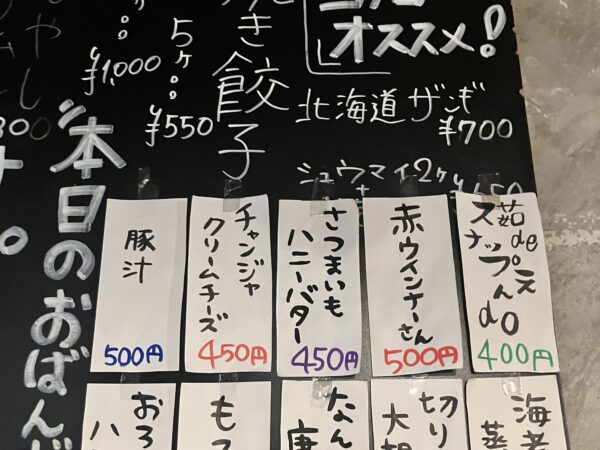 オススメ!
北海道ザンギ
¥700
シュウマイ2ヶ
き餃子
5ヶ
¥550
¥1,000
本日のおばん
茹de
スナップえんdo
400円
赤ウインナーさん
500円
さつまいも
ハニーバター
450円
チャンジャ
クリームチーズ
450円
豚汁
500円
海老
蒸
切り
大
なん
唐
も
おろ
ハ